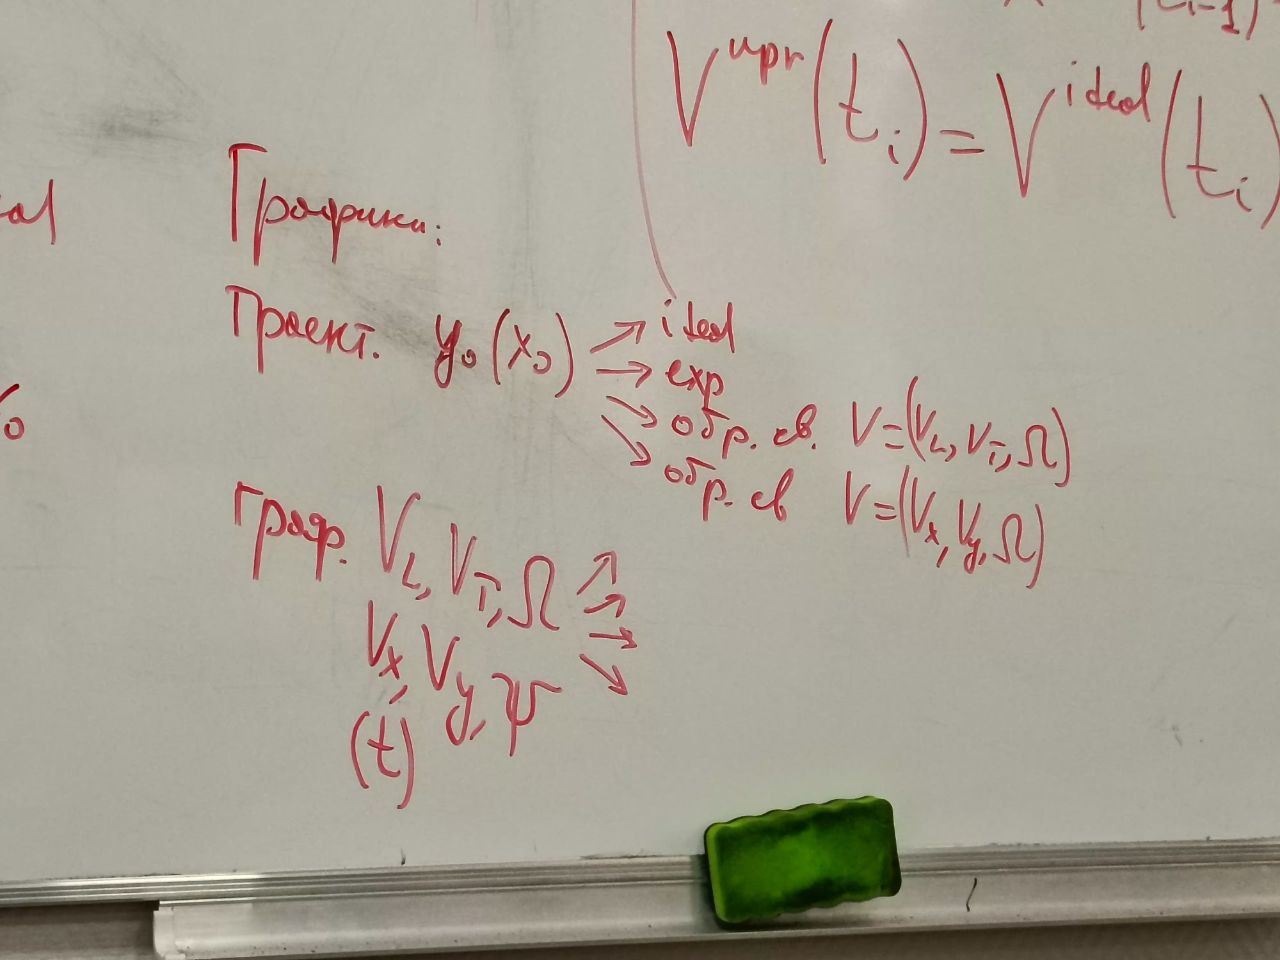 (t i-1)
V^upr (t i) = V^ideal (t i)
Графики:
Проект. y₀(x₀) → ideal
→ exp
→ обр. св. V=(V_L, V_T, Ω)
→ обр. св V=(V_x, V_y, Ω)
граф. V_L, V_T, Ω → → → →
V_x, V_y, ψ
(t)